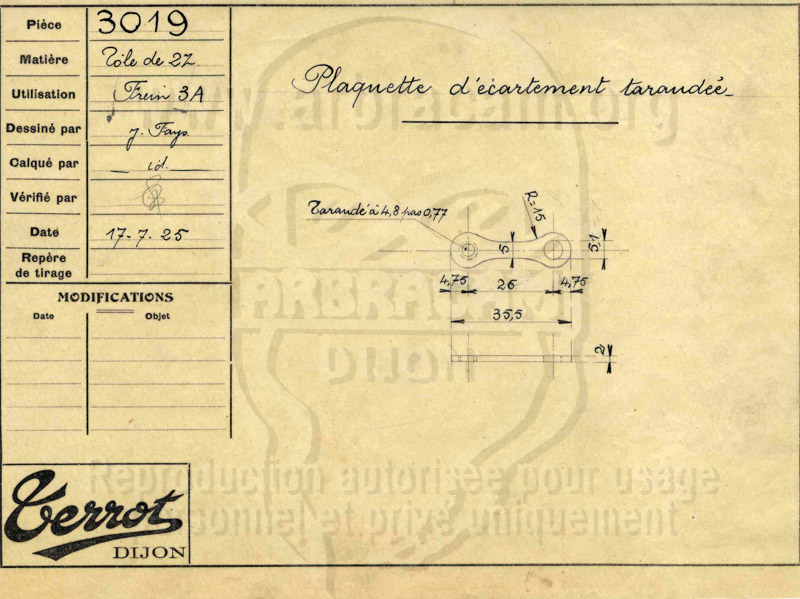 Pièce 3019
Matière Tôle de 2Z.
Utilisation Frein 3A
Dessiné par J. Fays.
Calqué par id.
Vérifié par
Date 17-7.25
Repère
de tirage
MODIFICATIONS
Date Objet
Plaquette d'écartement taraudée
Taraudé à 4,8 pas 0,77
R=15
5
5,1
4,75 26 4,75
35,5
2
www.arbracam.org
ARBRACAM
DIJON
Reproduction autorisée pour usage
personnel et privé uniquement
Terrot
DIJON